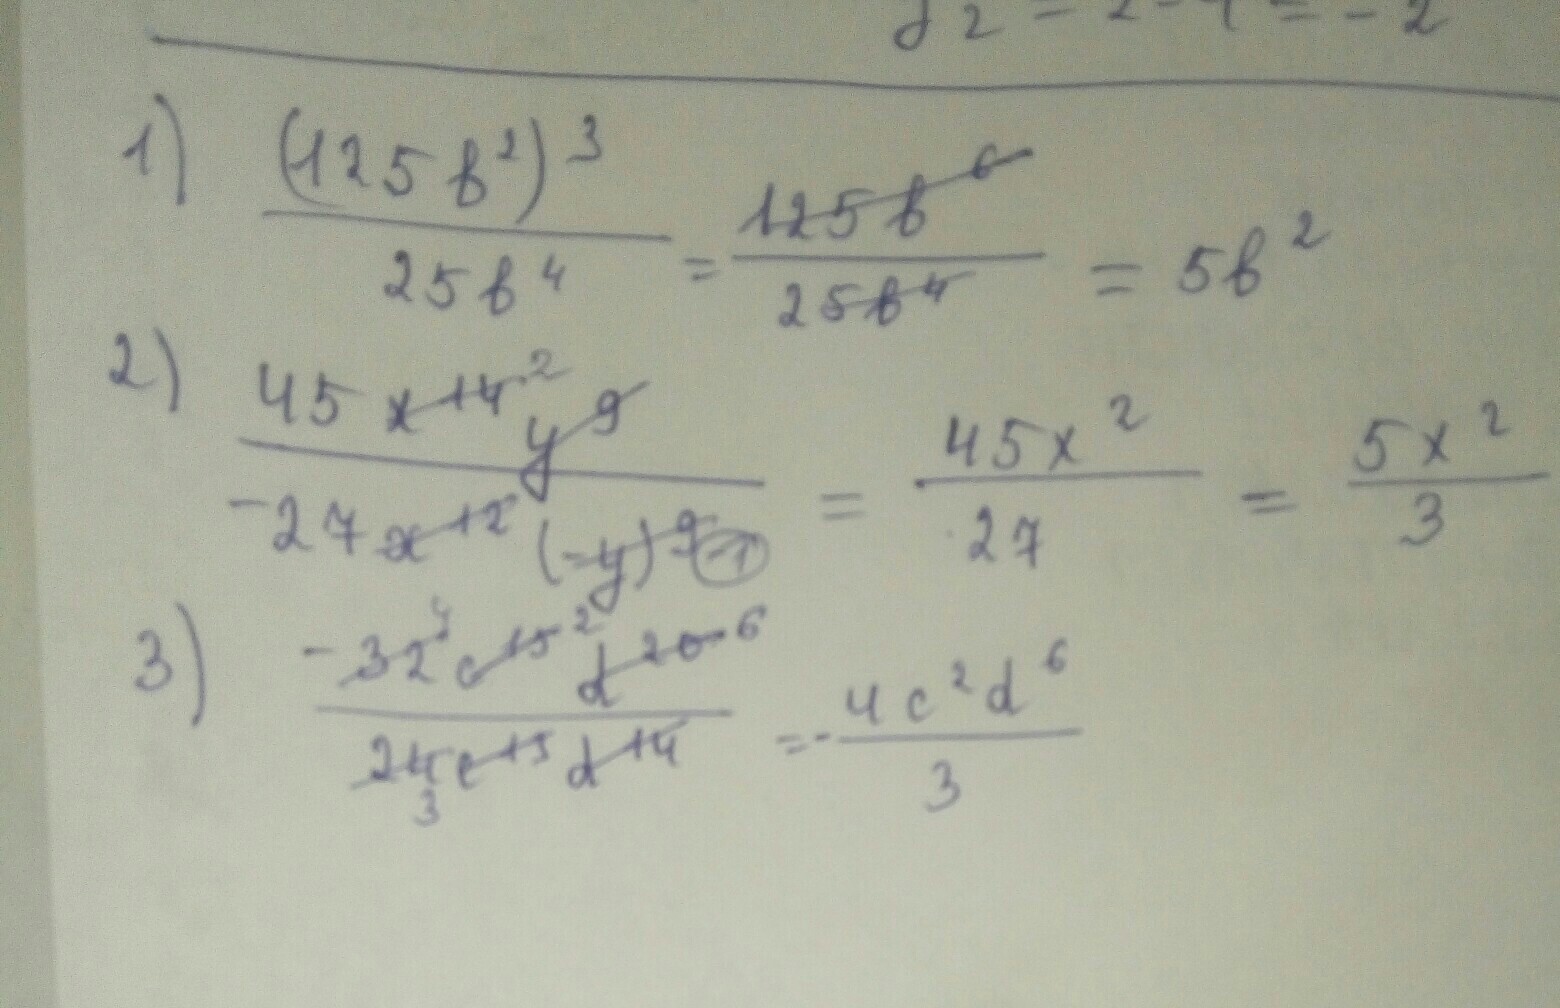 2 = 2 - 4 = - 2
1) (125b²)³ / 25b⁴ = 125b⁶ / 25b⁴ = 5b²
2) 45x¹⁴ ² y⁹ / -27x¹² (-y)⁹ (-1) = 45x² / 27 = 5x² / 3
3) -32 ⁴ c¹⁵ ² d²⁰ ⁶ / 24 3 c¹³ d¹⁴ = - 4c²d⁶ / 3